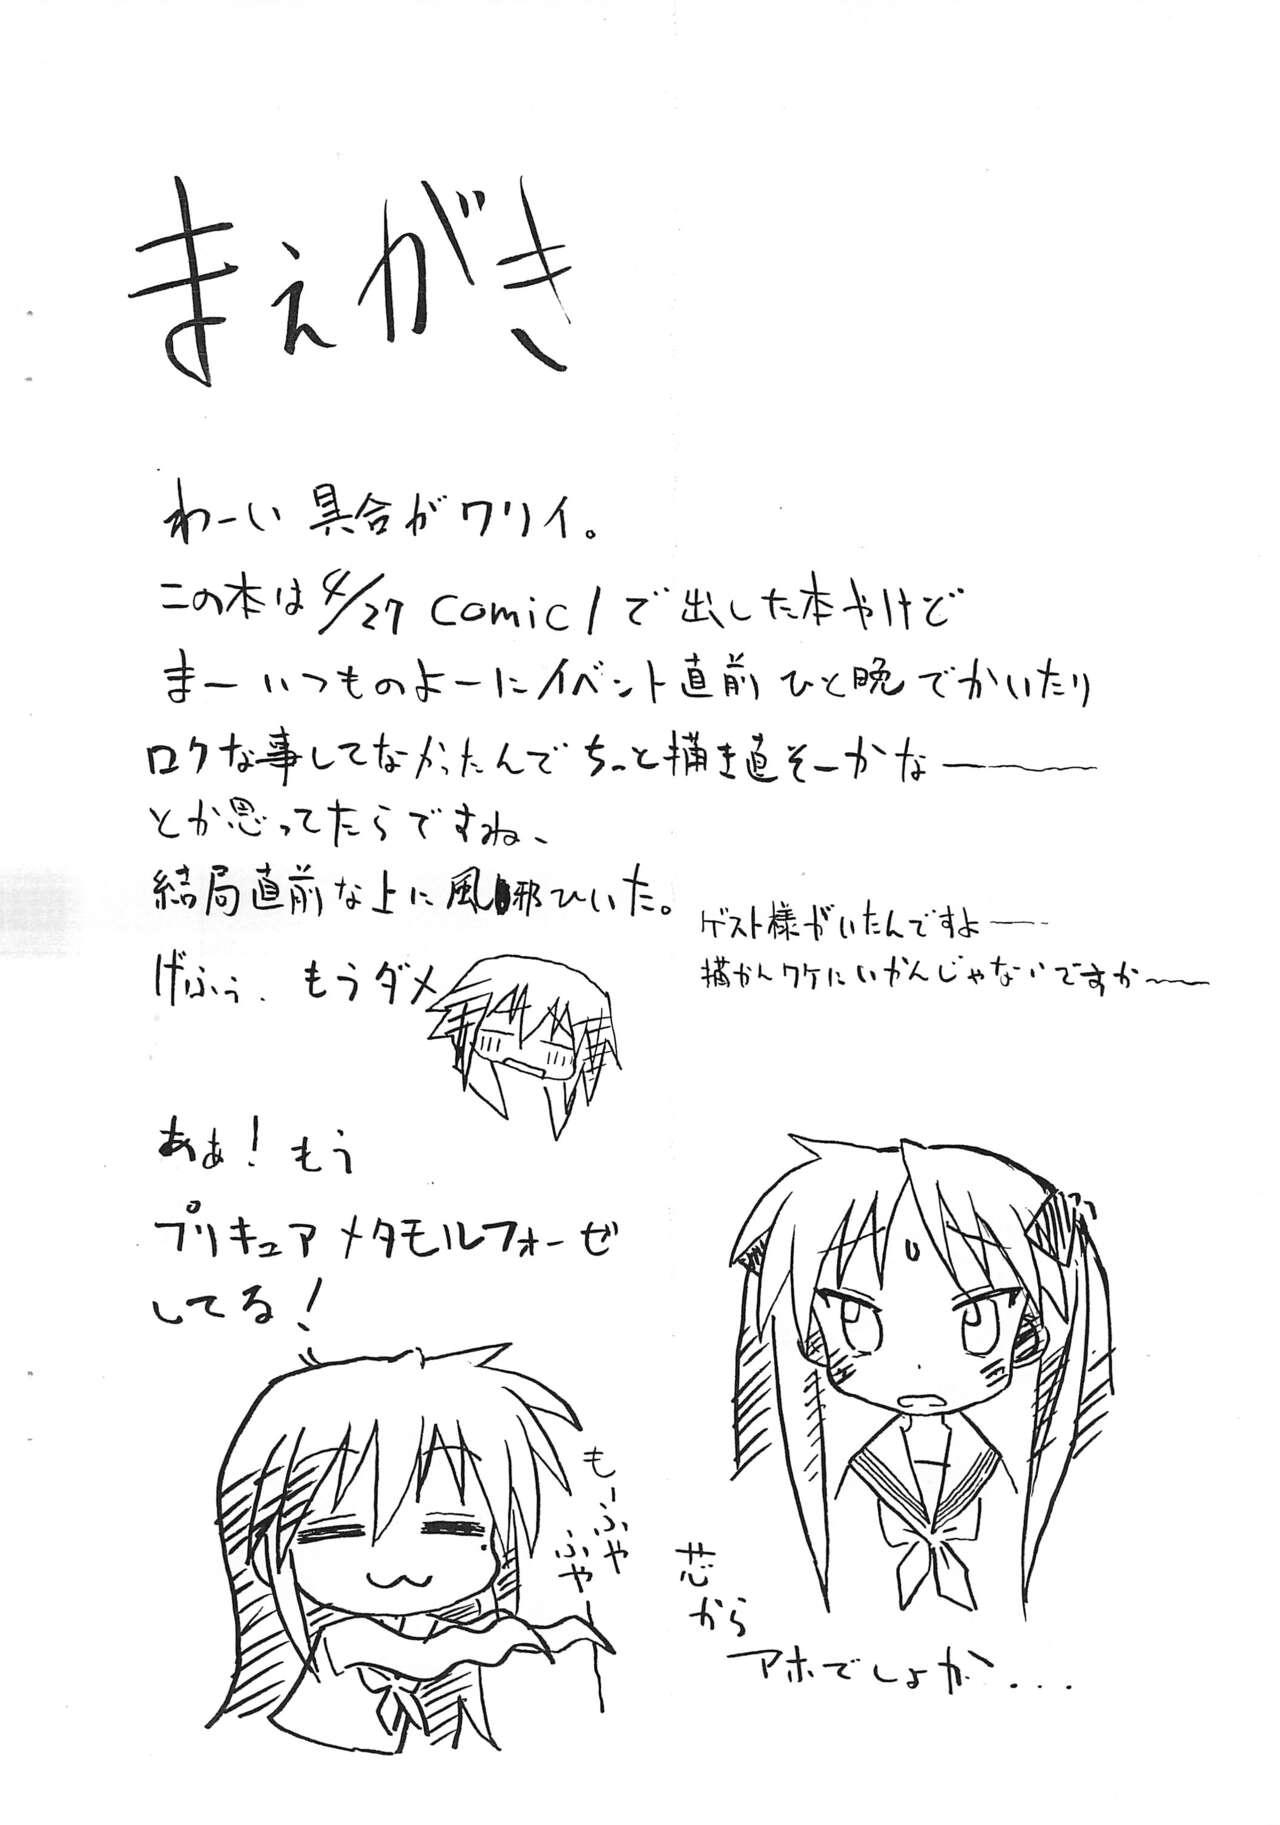 まえがき
わーい 具合がワリィ。
この本は4/27 comic1で出した本やけど
まーいつものよーにイベント直前ひと晩でかいたり
ロクな事してなかったんでちっと描き直そーかなー
とか思ってたらですね、
結局直前な上に風邪ひいた。
げふぅ、もうダメ
ゲスト様がいたんですよー
描かんワケにいかんじゃないですかー
あぁ!もう
プリキュアメタモルフォーゼ
してる!
もーふや
ふやー
芯から
アホでしょか...